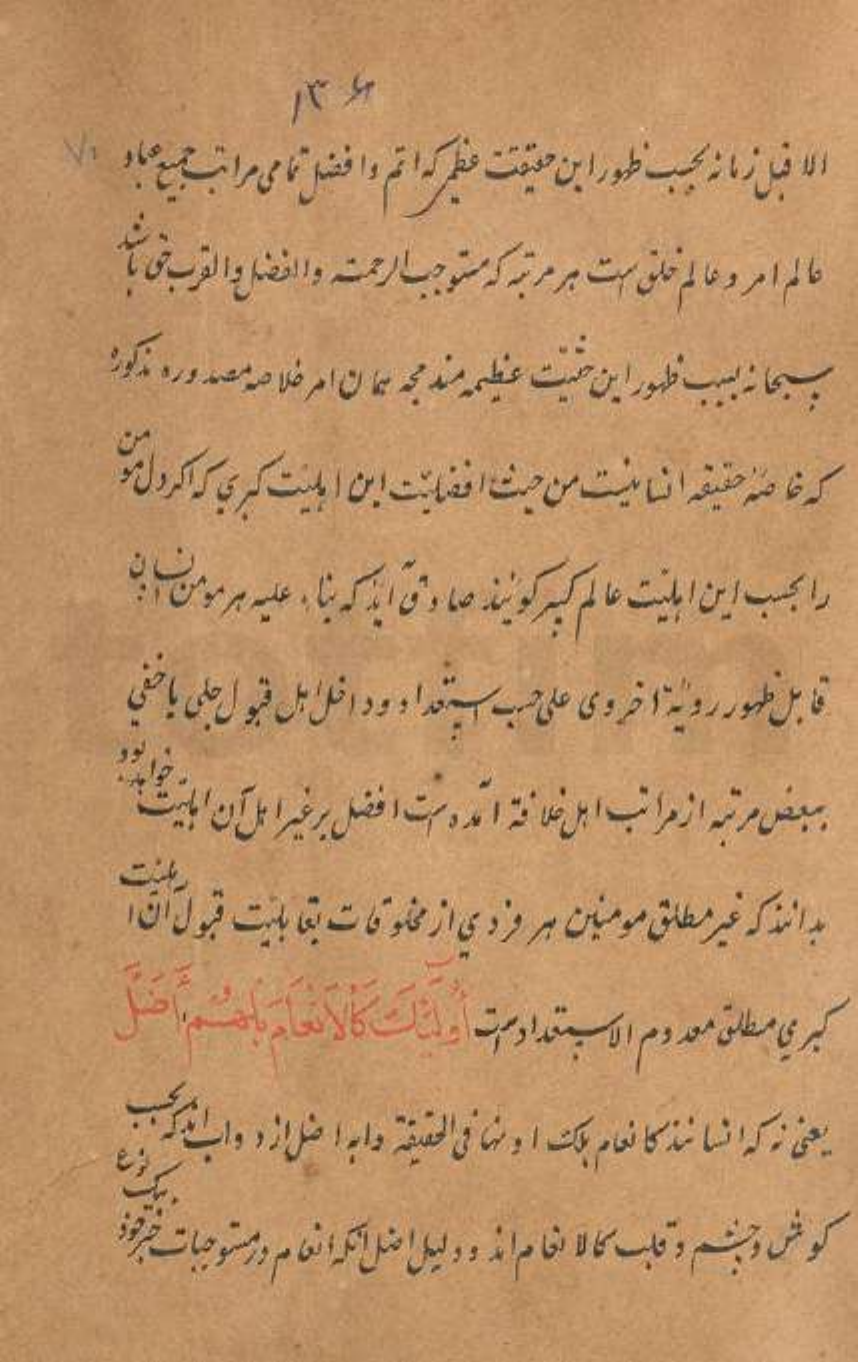 ۱۳۶
۷۱
الا قبل زمانه بحسب ظهور این حقیقت عظمی که اتم و افضل تمامی مراتب جمیع عباد
عالم امر و عالم خلق است هر مرتبه که مستوجب الرحمته والفضل والقرب حق باشد
سبحانه بسبب ظهور این حثیّت عظیمه مندمجه همان امر خلاصه مصدوره مذکوره
که خاصهٔ حقیقه انسانیست من حیث افضلیّت این اهلیّت کبری که اکر دل مومن
را بحسب این اهلیّت عالم کبیر کویند صادق آید که بناء علیه هر مومن انسان
قابل ظهور رویة اخروی علی حسب استعداد و داخل اهل قبول جلی یا خفی
ببعض مرتبه از مراتب اهل خلافة آمده است افضل بر غیر اهل آن اهلیّت خواهد بود
بدانند که غیر مطلق مومنین هر فردی از مخلوقات بقابلیّت قبول آن اهلیّت
کبری مطلق معدوم الاستعداد است أُولَئِكَ كَالأَنْعَامِ بَلْ هُمْ أَضَلُّ
یعنی نه که انسانند کانعام بلک اونها فی الحقیقة دابه اضل از دواب اند که بحسب
کوش و چشم و قلب کالانعام اند و دلیل اضل آنکه انعام در مستوجبات خبر خود بیک نوع